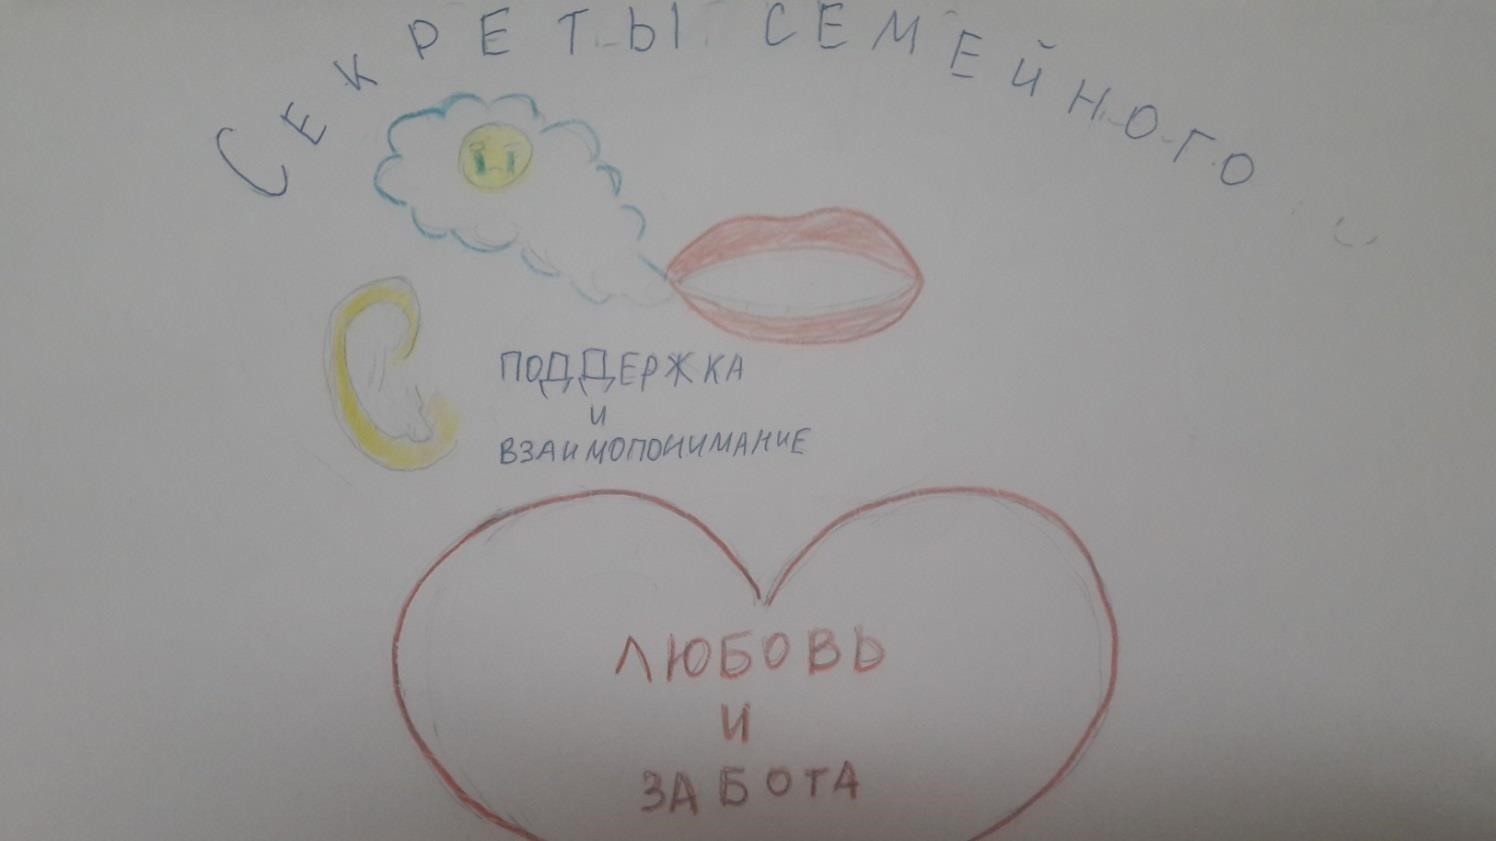 СЕКРЕТЫ СЕМЕЙНОГО
ПОДДЕРЖКА
И
ВЗАИМОПОНИМАНИЕ
ЛЮБОВЬ
И
ЗАБОТА